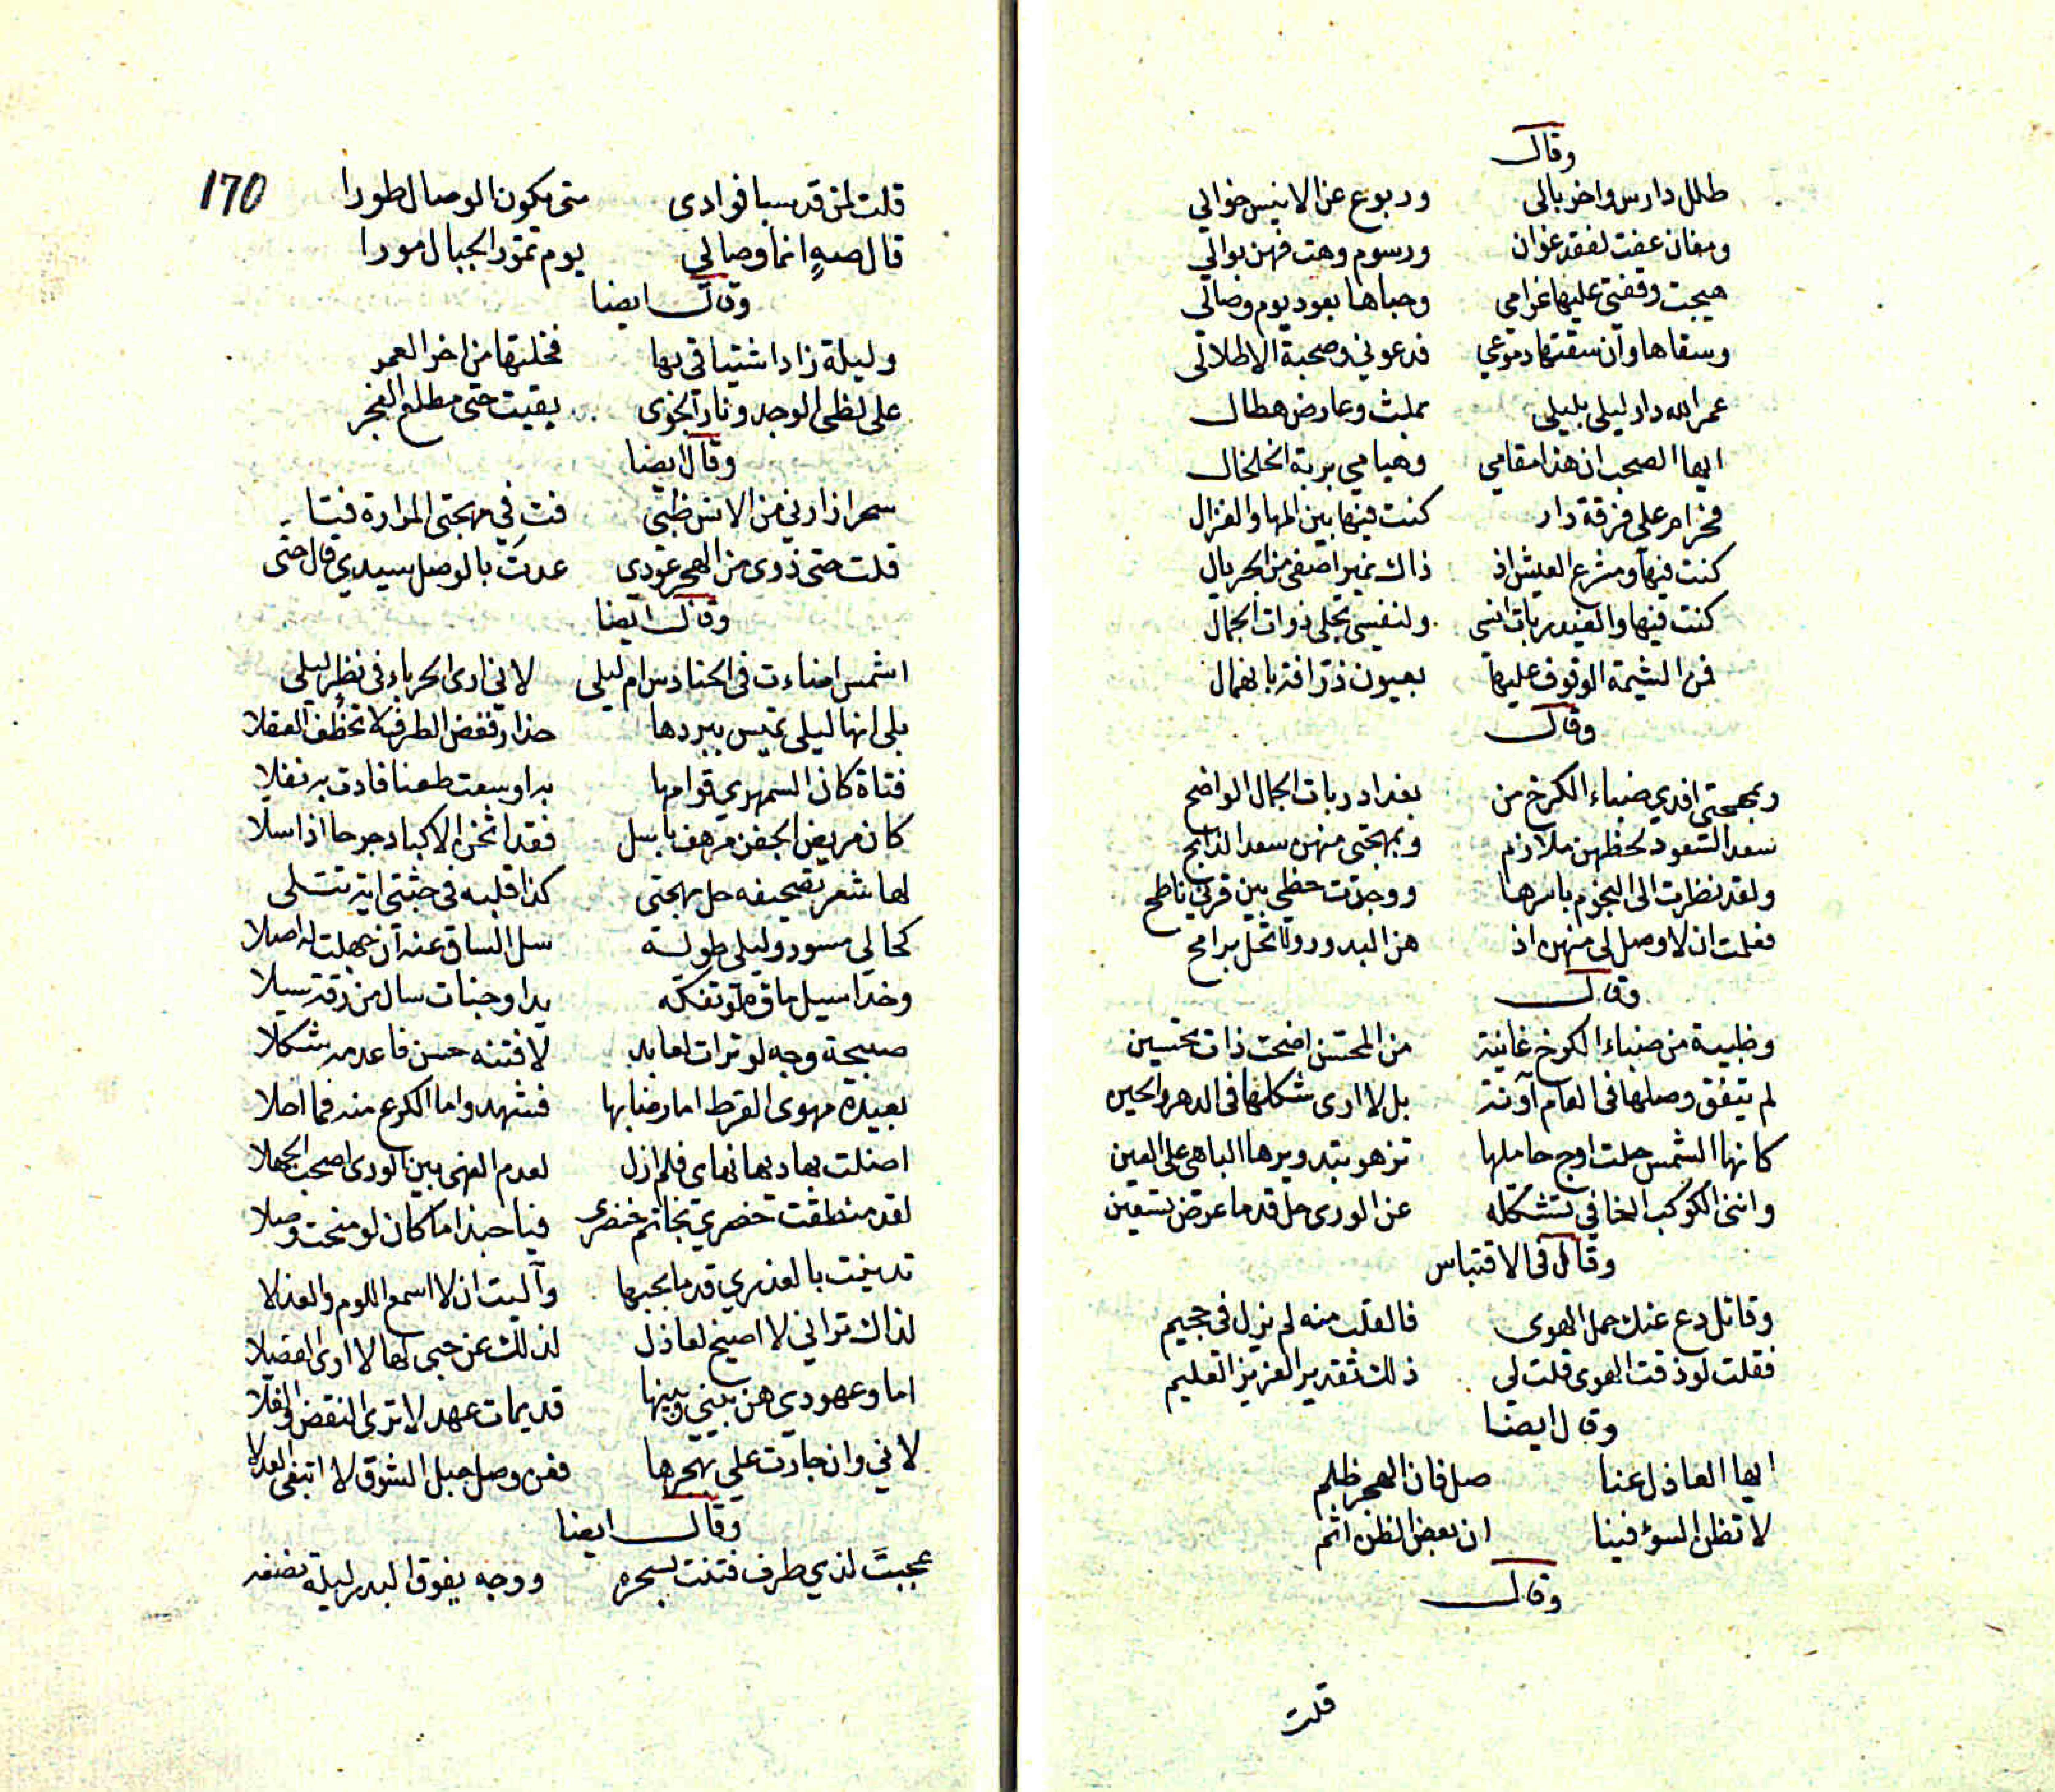 وقال
طلل دارس واخر بالى وربوع عن الانيس خوالي
ومغان عفت لفقد غوان ورسوم وهت فهن بوالي
هيجت وقفتي عليها غرامى وحباها بعود يوم وصالى
وسقاها وان سقتها دموعي فدعوني وصحبة الاطلالى
عمر الله دار ليلى بليلى بملث وعارض هطال
ايها الصحب ان هذا مقامي وهيامي بربة الخلخال
فخرام على فرقة دار كنت فيها بين المها والغزال
كنت فيها ومشرع العيش اذ ذاك نمير اصفى من الجريال
كنت فيها والغيد ربات انسى ولنفسي تجلى ذوات الجمال
فمن الشيمة الوقوف عليها بعيون ذرافة بانهمال
وقال
وبمهجتي افدي ضباء الكرخ من بغداد ربات الجمال الواضح
سعد السعود لحظهن ملازم وبمهجتى منهن سعد الذابح
ولقد نظرت الى النجوم باسرها ووجدت حظي بين قرني ناطح
فعلمت ان لا وصل لى منهن اذ هن البدور ولا تحل برامح
وقال
وظبية من ضباء الكرخ غانية من المحتسن اضحت ذات تحسين
لم يتفق وصلها فى العام آونة بل لا ارى شكلها فى الدهر والحين
كانها الشمس حلت اوج حاملها تزهو بتدويرها الباهى على العين
وانني الكوكب الخافي تشكله عن الورى حل قدما عرض تسعين
وقال فى الاقتباس
وقائل دع عنك حمل الهوى فالقلب منه لم يزل فى جحيم
فقلت لو ذقت الهوى قلت لى ذلك تقدير العزيز العليم
وقال ايضا
ايها العاذل عنا صل فان الهجر ظلم
لا تظن السوء فينا ان بعض الظن اثم
وقال
قلت
170
قلت لمن قد سبا فوادى متى يكون الوصال طورا
قال صهٍ انما وصالي يوم تمور الجبال مورا
وقال ايضا
وليلة زاد اشتياقي بها فخلتها من اخر العمر
على لظى الوجد ونار الجوى بقيت حتى مطلع الفجر
وقال ايضا
سحرا زارني من الانس ظبى فت في مهجتى المرارة فتا
قلت حتى ذوى من الهجر عودي عدت بالوصل سيدي قال حتى
وقال ايضا
اشمس اضاءت فى الحنادس ام ليلى لاني ارى الحرباء فى نظر ليلى
بلى انها ليلى تميس ببردها حذار فغض الطرف لا تخطف العقلا
فتاة كان السمهري قوامها به اوسعت طعنا فادت به نفلا
كان مريض الجفن مرهف باسل فقد اثخن الاكباد جرحا اذا سلا
لها شعر تصحيفه حل مهجتى كذا قلبه فى جثتى اية تتلى
كحالي مسود وليلى طوله سل الساق عنه ان جهلت له اصلا
وخد اسيل ماؤه تفكه بدا وجنات سال من رقة سيلا
صبيحة وجه لو ترات لعابد لافتنه حسن فاعدمه شكلا
بعيدة مهوى القرط اما رضابها فشهد واما الكرع منه فما احلا
اضلت بهاديها نهاى فلم ازل لعدم النهى بين الورى اصحب الجهلا
لقد منطقت خصري بخاتم خنصرى فيا حبذا ما كان لو منحت وصلا
تدينت بالعذري قدما بحبها وآليت ان لا اسمع اللوم والعذلا
لذاك تراني لا اصيخ لعاذل لذلك عن حبى لها لا ارى فصلا
اما وعهودي هن بيني وبينها قديمات عهد لا ترى النقض والفلا
لاني وان جارت علي بهجرها فعن وصل حبل الشوق لا ابتغى العدلا
وقال ايضا
عجبت لذي طرف فتنت بسحره ووجه يفوق البدر ليلة نصفه